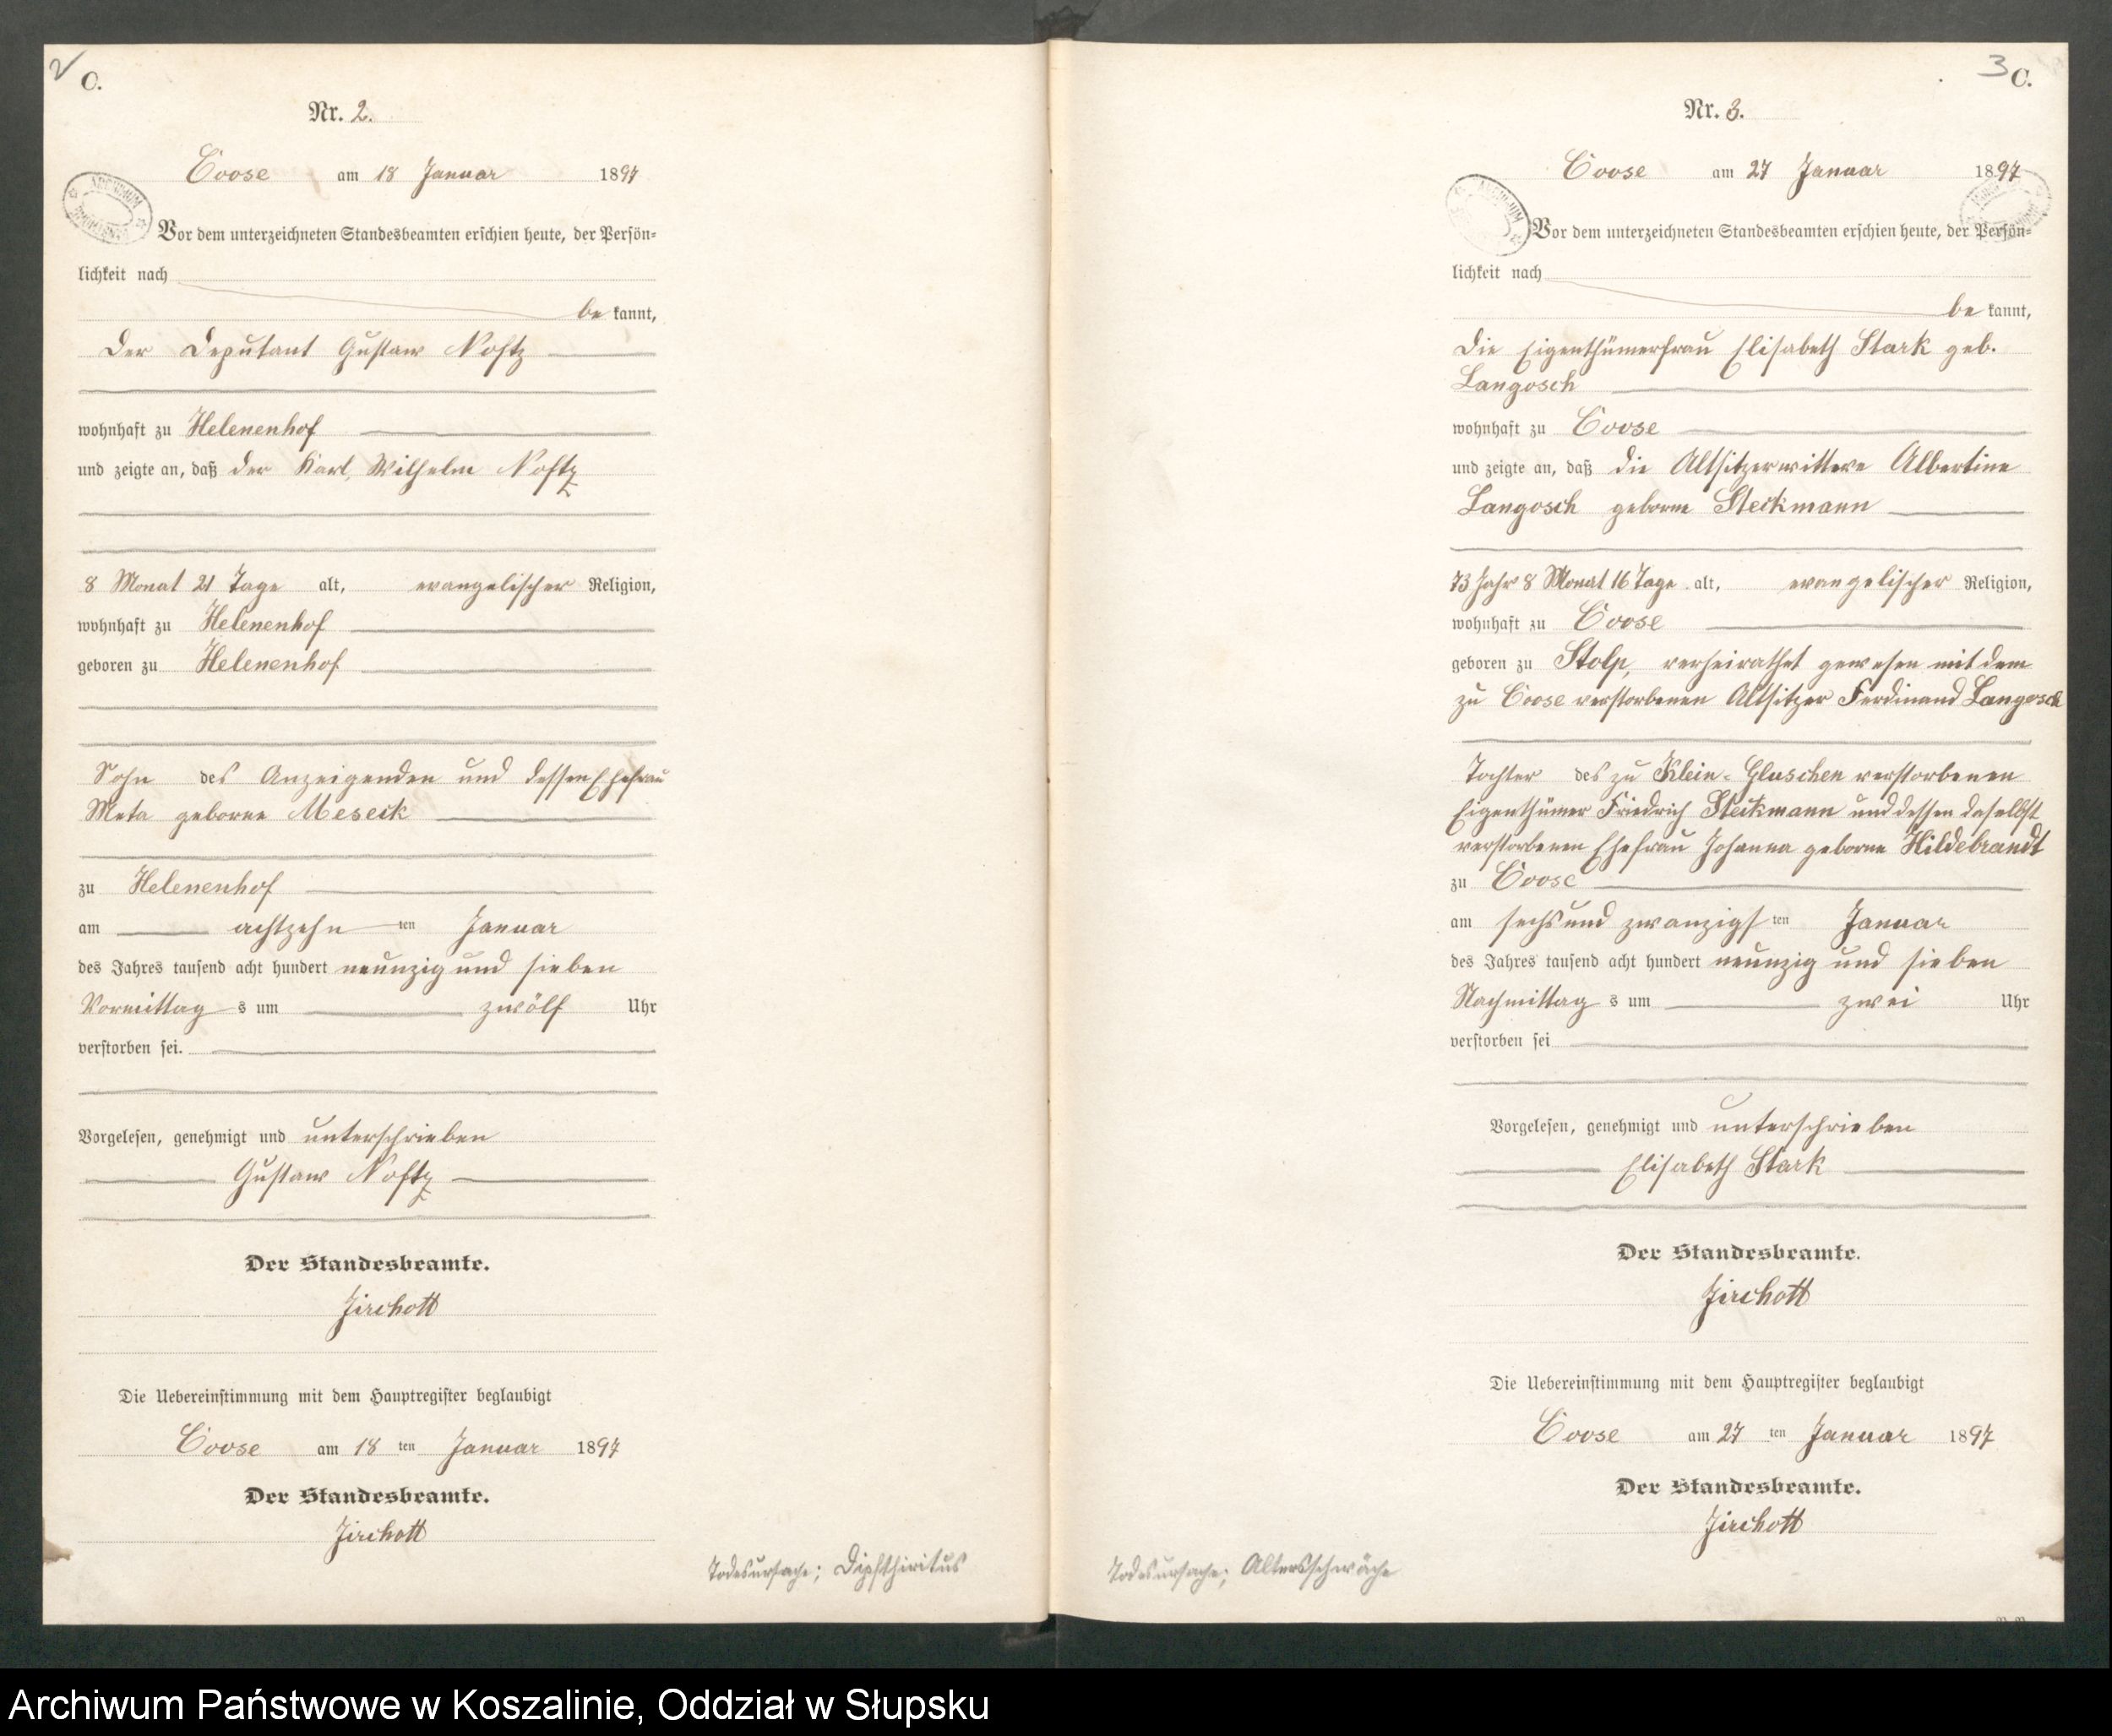 2
C.
Nr. 2.
Coose am 18 Januar 1897
Vor dem unterzeichneten Standesbeamten erschien heute, der Persön-
lichkeit nach
be kannt,
der Deputant Gustav Noftz
wohnhaft zu Helenenhof
und zeigte an, daß der Karl, Wilhelm Noftz
8 Monat 21 Tage alt, evangelischer Religion,
wohnhaft zu Helenenhof
geboren zu Helenenhof
Sohn des Anzeigenden und dessen Ehefrau
Meta geborne Meseck
zu Helenenhof
am achtzehn ten Januar
des Jahres tausend acht hundert neunzig und sieben
Vormittag s um zwölf Uhr
verstorben sei.
Vorgelesen, genehmigt und unterschrieben
Gustav Noftz
Der Standesbeamte.
Jirchott
Die Uebereinstimmung mit dem Hauptregister beglaubigt
Coose am 18 ten Januar 1897
Der Standesbeamte.
Jirchott
Todesursache; Dipfthiritus
3
C.
Nr. 3.
Coose am 27 Januar 1897
Vor dem unterzeichneten Standesbeamten erschien heute, der Persön-
lichkeit nach
be kannt,
die Eigenthümerfrau Elisabeth Stark geb.
Langosch
wohnhaft zu Coose
und zeigte an, daß die Altsitzerwittwe Albertine
Langosch geborne Steckmann
73 Jahr 8 Monat 16 Tage alt, evangelischer Religion,
wohnhaft zu Coose
geboren zu Stolp, verheirathet gewesen mit dem
zu Coose verstorbenen Altsitzer Ferdinand Langosch
Tochter des zu Klein-Gluschen verstorbenen
Eigenthümer Friedrich Steckmann und dessen daselbst
verstorbenen Ehefrau Johanna geborne Hildebrandt
zu Coose
am sechs und zwanzigs ten Januar
des Jahres tausend acht hundert neunzig und sieben
Nachmittag s um zwei Uhr
verstorben sei
Vorgelesen, genehmigt und unterschrieben
Elisabeth Stark
Der Standesbeamte.
Jirchott
Die Uebereinstimmung mit dem Hauptregister beglaubigt
Coose am 27 ten Januar 1897
Der Standesbeamte.
Jirchott
Todesursache; Altersschwäche
Archiwum Państwowe w Koszalinie, Oddział w Słupsku